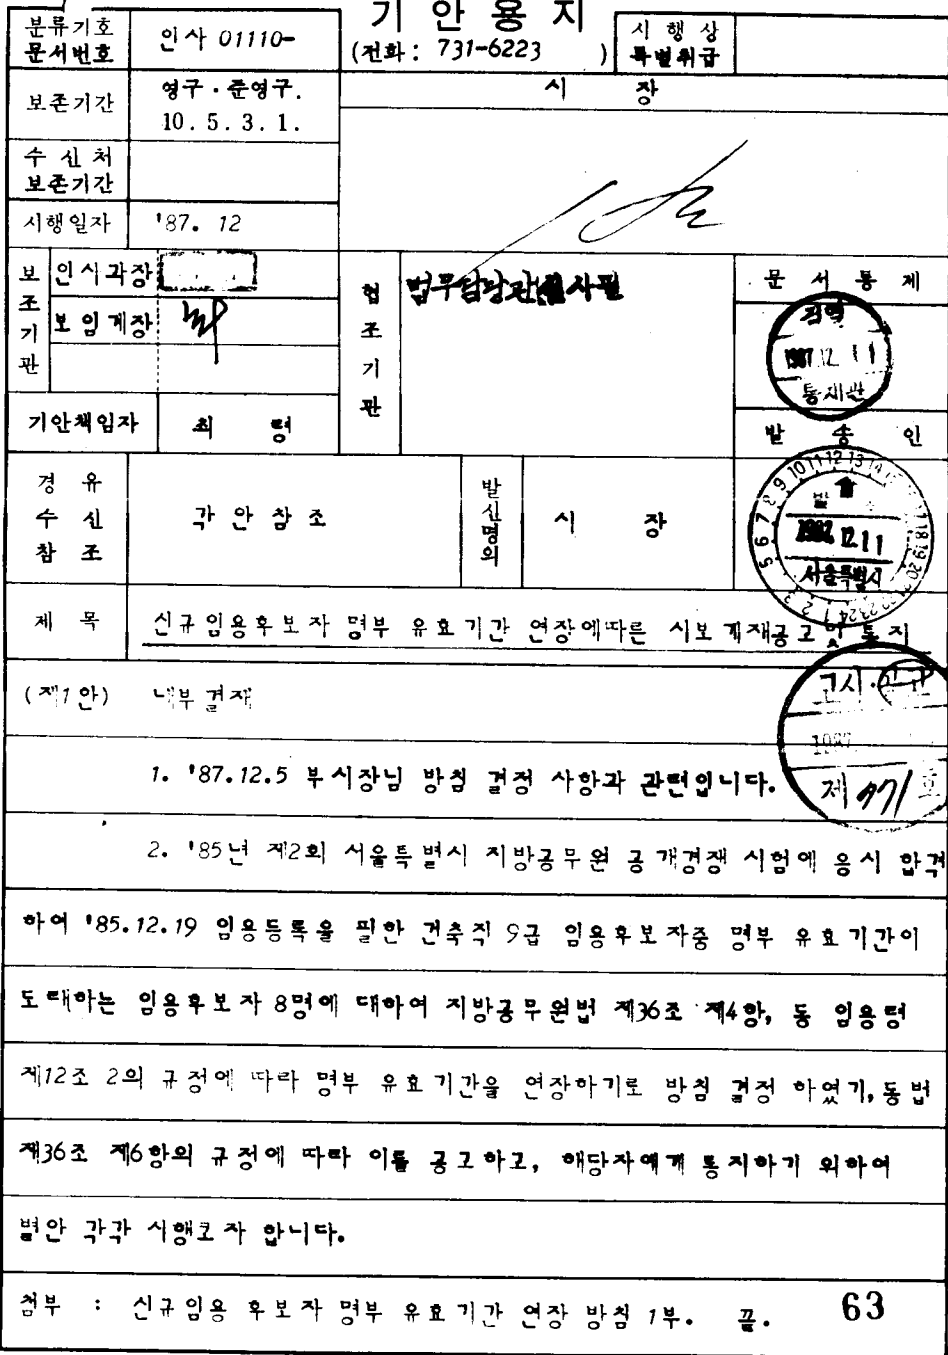 기 안 용 지
분류기호
문서번호
인사 01110-
(전화 : 731-6223 )
시 행 상
특별취급
보존기간
영구 · 준영구.
10. 5. 3. 1.
시 장
수 신 처
보존기간
시행일자
'87. 12
보조기관
인사과장
보임계장
협조기관
법무담당관 심사필
문 서 통 제
검열
1987. 12. 11
통제관
기안책임자
최 령
발 송 인
경 유
수 신
참 조
각 안 참 조
발신명의
시 장
발
12. 11
서울특별시
제 목
신규임용후보자 명부 유효기간 연장에따른 시보 게재공고 및 통지
(제1안) 내부결재
고시·공고
1987
제 971 호
1. '87.12.5 부시장님 방침 결정 사항과 관련입니다.
2. '85년 제2회 서울특별시 지방공무원 공개경쟁 시험에 응시 합격
하여 '85.12.19 임용등록을 필한 건축직 9급 임용후보자중 명부 유효기간이
도래하는 임용후보자 8명에 대하여 지방공무원법 제36조 제4항, 동 임용령
제12조 2의 규정에 따라 명부 유효기간을 연장하기로 방침 결정 하였기, 동법
제36조 제6항의 규정에 따라 이를 공고하고, 해당자에게 통지하기 위하여
별안 각각 시행코자 합니다.
첨부 : 신규임용 후보자 명부 유효기간 연장 방침 1부. 끝.
63